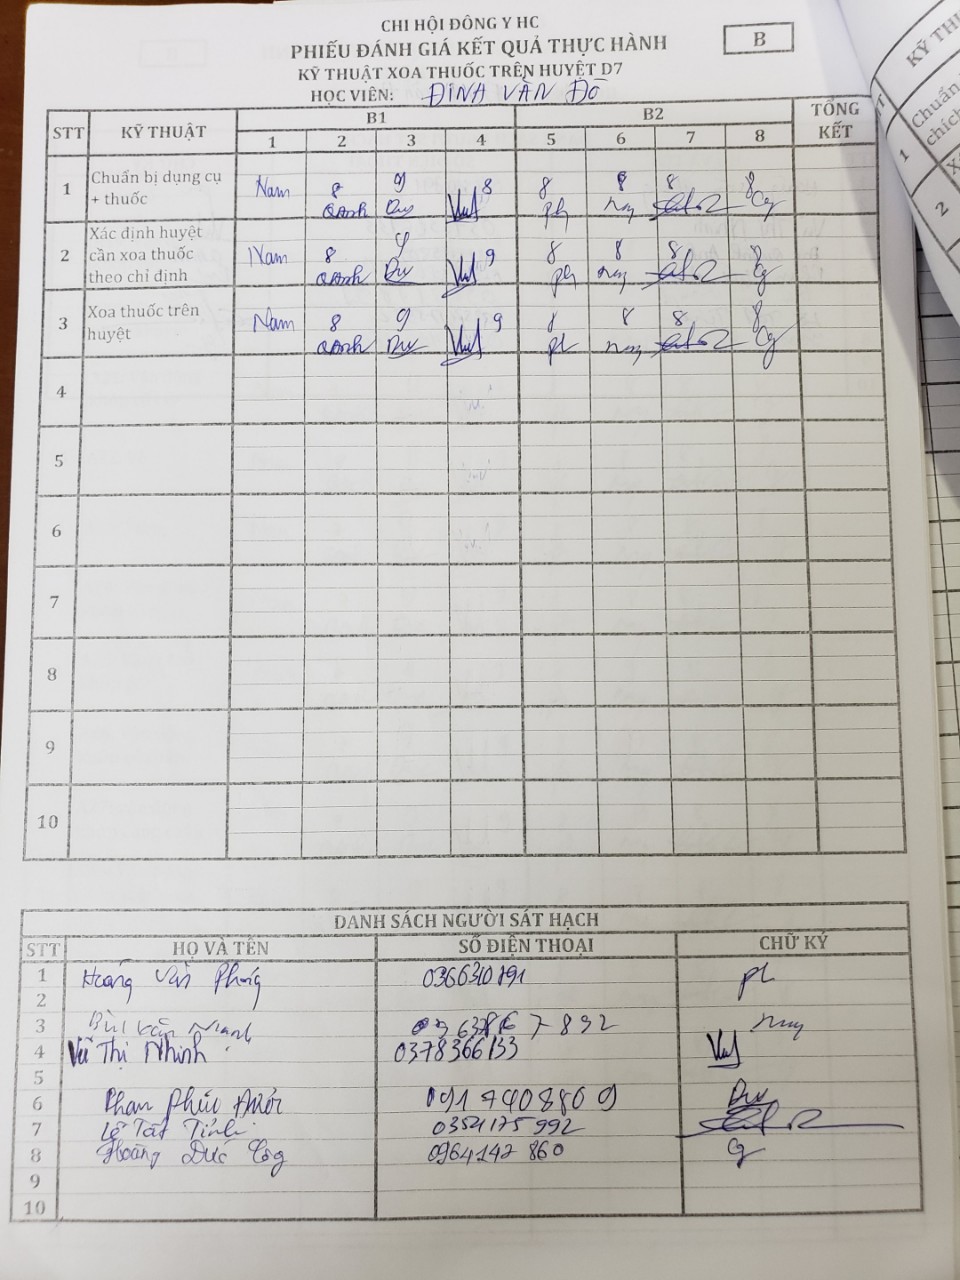 CHI HỘI ĐÔNG Y HC
PHIẾU ĐÁNH GIÁ KẾT QUẢ THỰC HÀNH
B
KỸ THUẬT XOA THUỐC TRÊN HUYỆT D7
HỌC VIÊN: ĐINH VĂN ĐÔ
STT KỸ THUẬT B1 B2 TỔNG KẾT
1 2 3 4 5 6 7 8
1 Chuẩn bị dụng cụ + thuốc
Nam 8 9 8 8 8 8 8
QAnh
2 Xác định huyệt cần xoa thuốc theo chỉ định
Nam 8 9 9 8 8 8 8
QAnh
3 Xoa thuốc trên huyệt
Nam 8 9 9 8 8 8 8
QAnh
4
5
6
7
8
9
10
DANH SÁCH NGƯỜI SÁT HẠCH
STT HỌ VÀ TÊN SỐ ĐIỆN THOẠI CHỮ KÝ
1 Hoàng Văn
2
3 Bùi Văn Mạnh
4 Vũ Thị Nhinh 0378366133
5
6 Phan Phúc 0917408809
7 Lê Tất 0354175992
8 Hoàng Đức 0964142860
9
10
KỸ TH
Chuẩn
chích
1
2